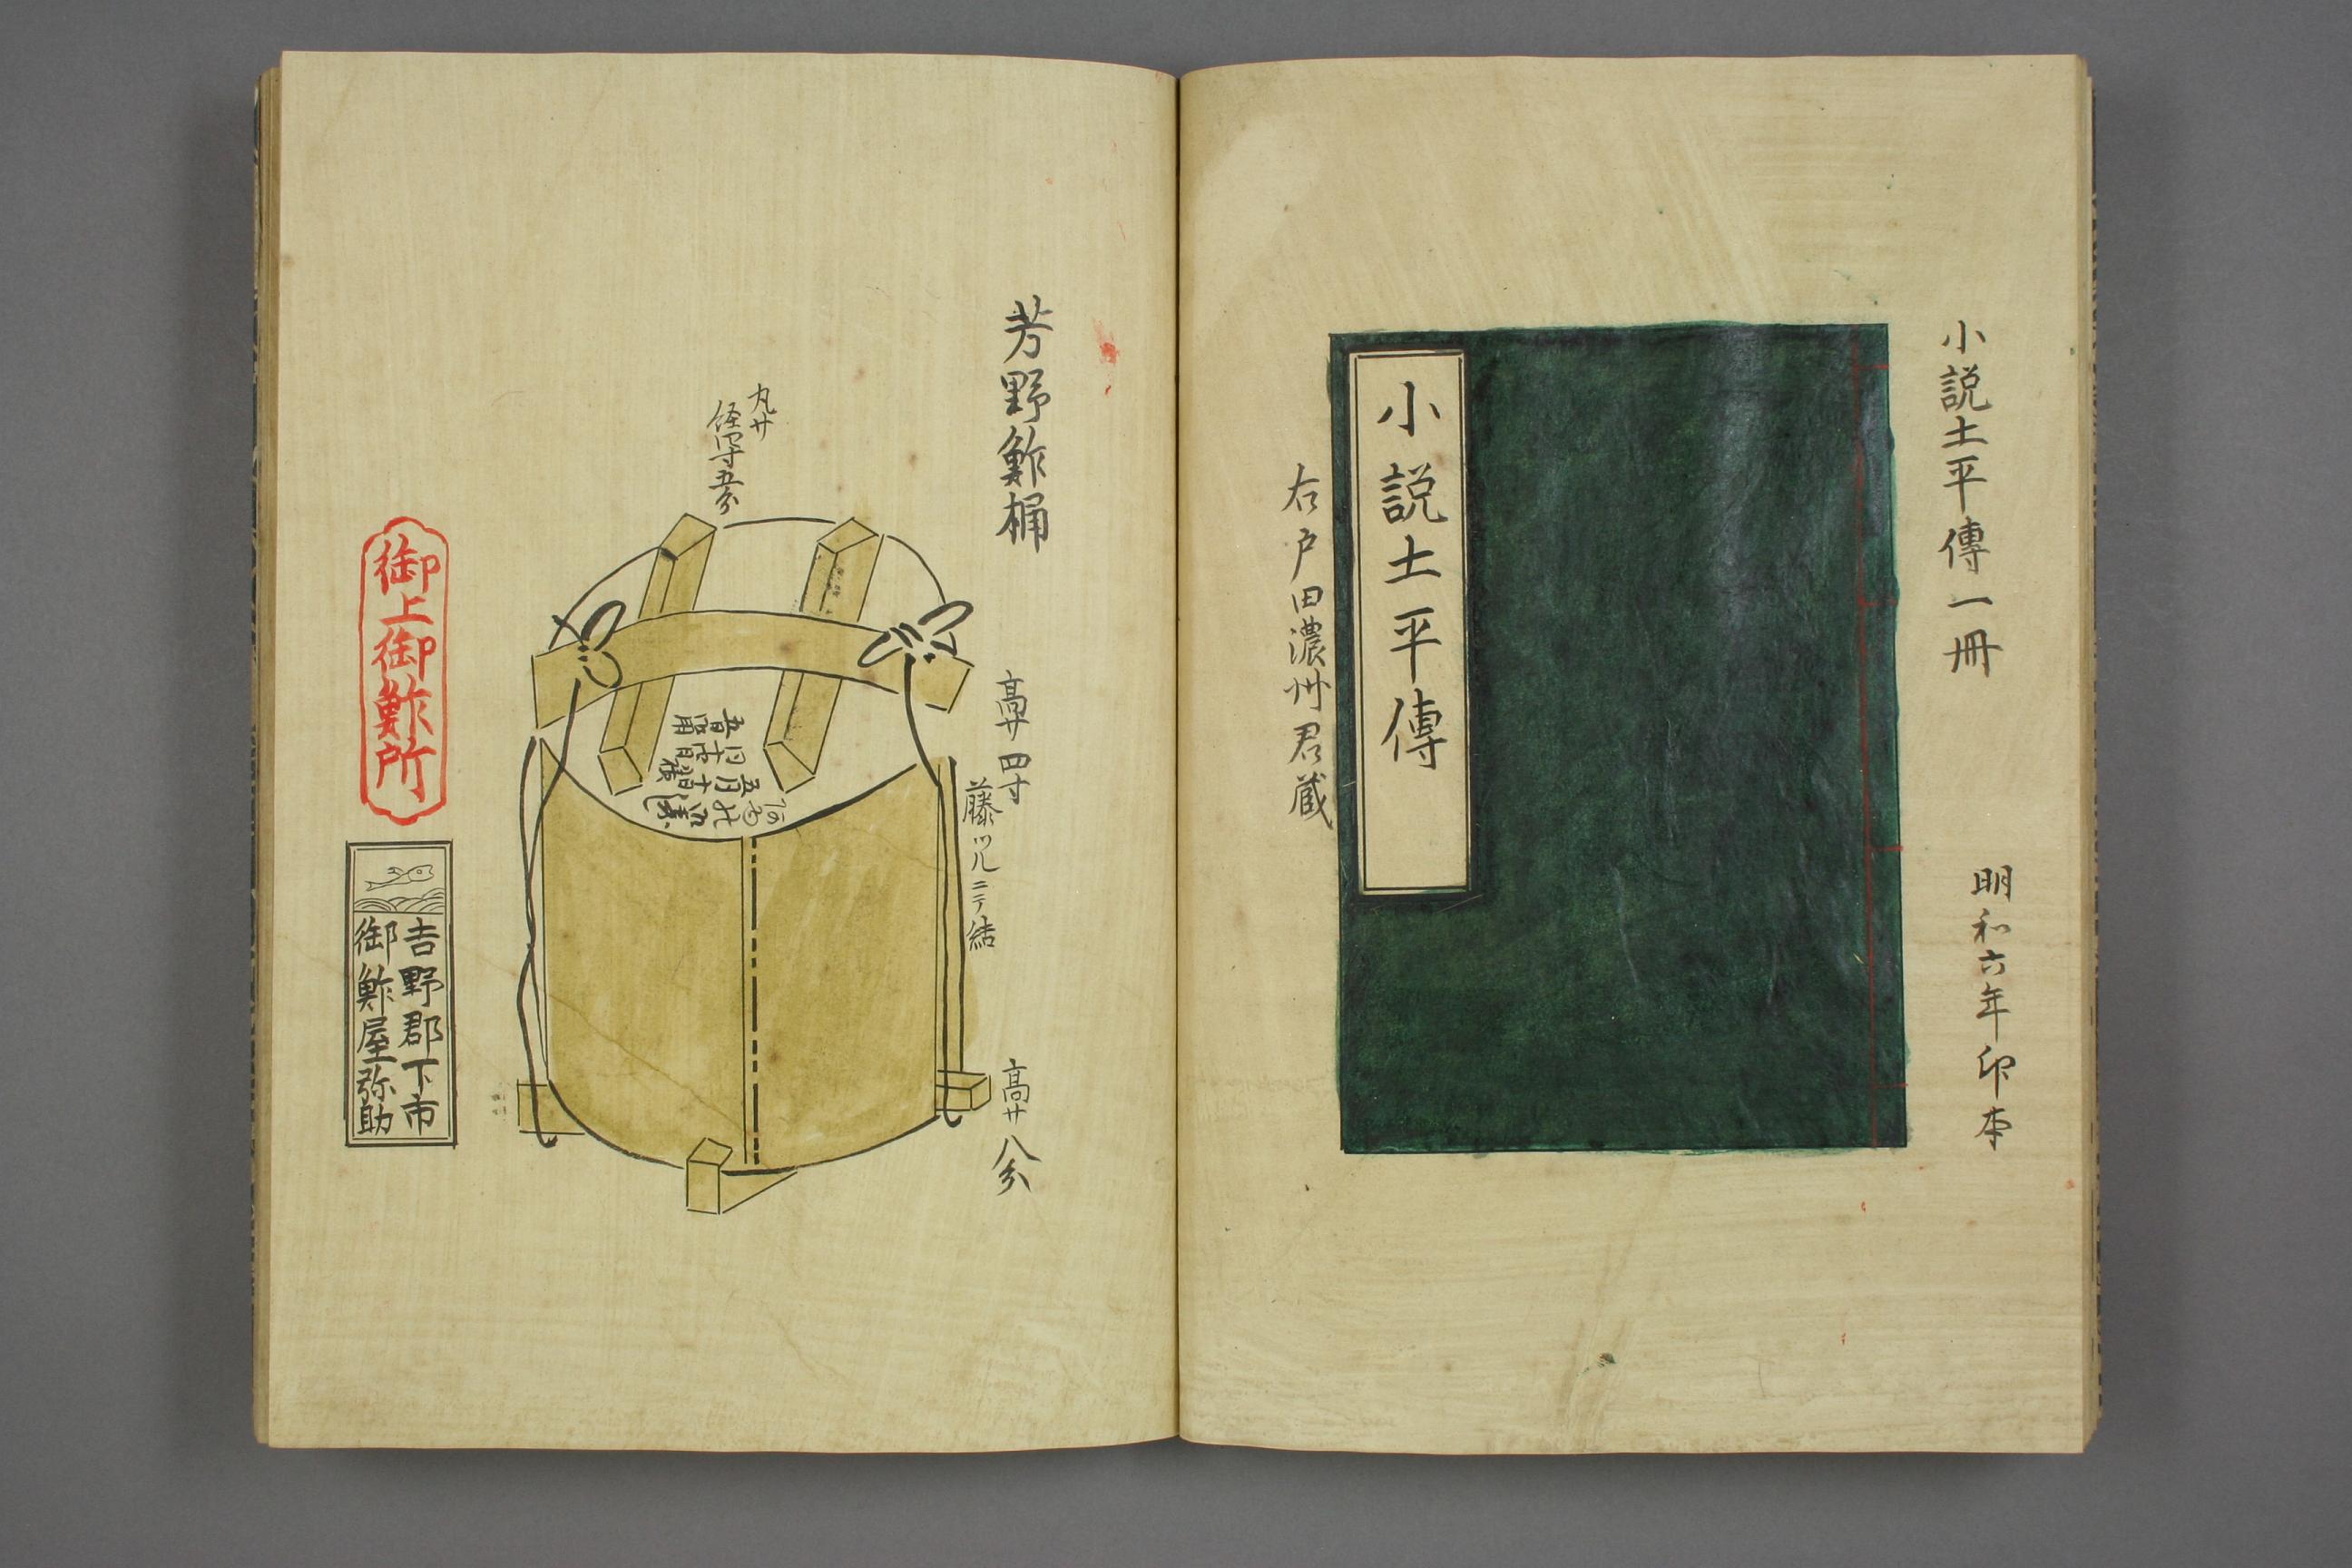 小説土平傳一冊
明和六年印本
小説土平傳
右戸田濃州君蔵
芳野鮓桶
高サ四寸
藤ツルニテ結
高サ八分
丸サ
径四寸五分
御上御鮓所
吉野郡下市
御鮓屋弥助